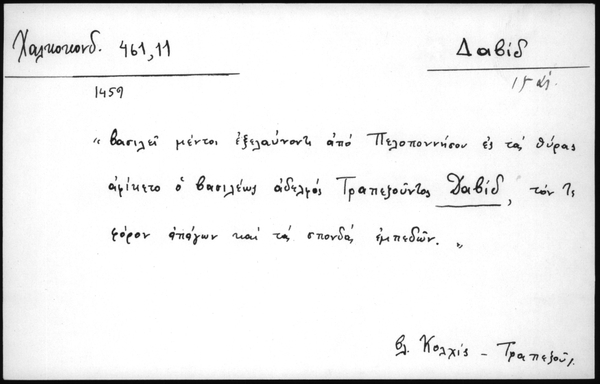 Χαλκοκονδ. 461,11
Δαβίδ
1459
15 αἰ.
“ Βασιλεῖ μέντοι ἐξελαύνοντι ἀπὸ Πελοποννήσου ἐς τὰς θύρας
ἀφίκετο ὁ βασιλέως ἀδελφός Τραπεζοῦντος Δαβίδ, τόν τε
φόρον ἀπάγων καὶ τὰς σπονδάς ἐμπεδῶν. „
βλ. Κολχίς – Τραπεζοῦς